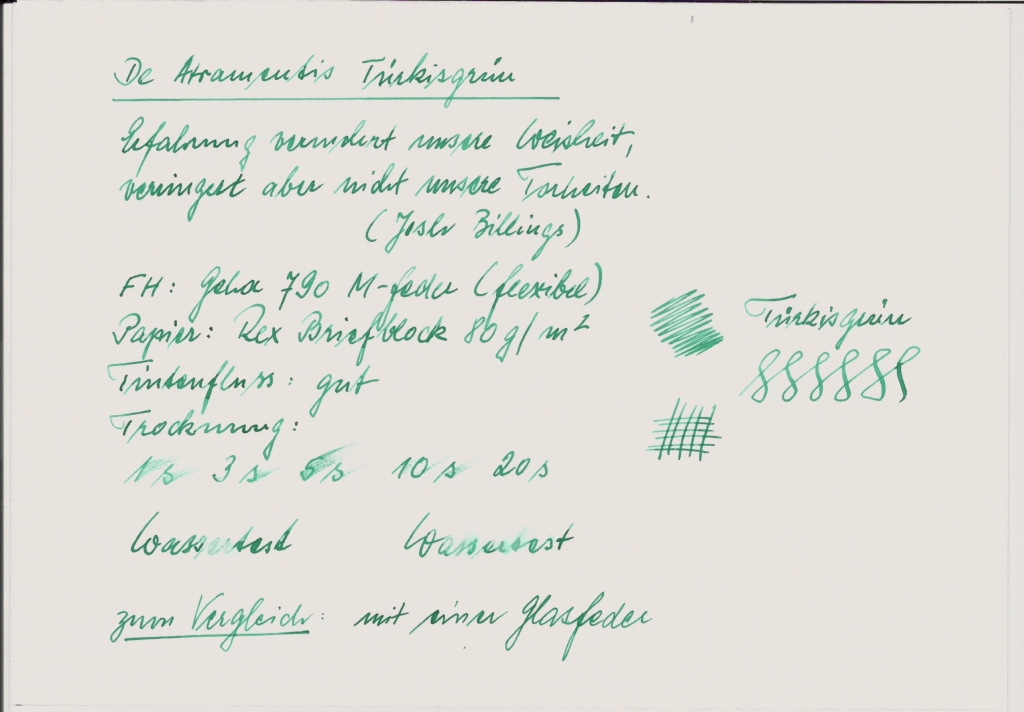 De Atramentis Türkisgrün
Erfahrung vermehrt unsere Weisheit,
verringert aber nicht unsere Torheiten.
(Josh Billings)
FH: Geha 790 M-feder (flexibel)
Papier: Rex Briefblock 80 g/m²
Türkisgrün
Tintenfluss: gut
Trocknung:
1s 3s 5s 10s 20s
Wassertest Wassertest
zum Vergleich: mit einer Glasfeder